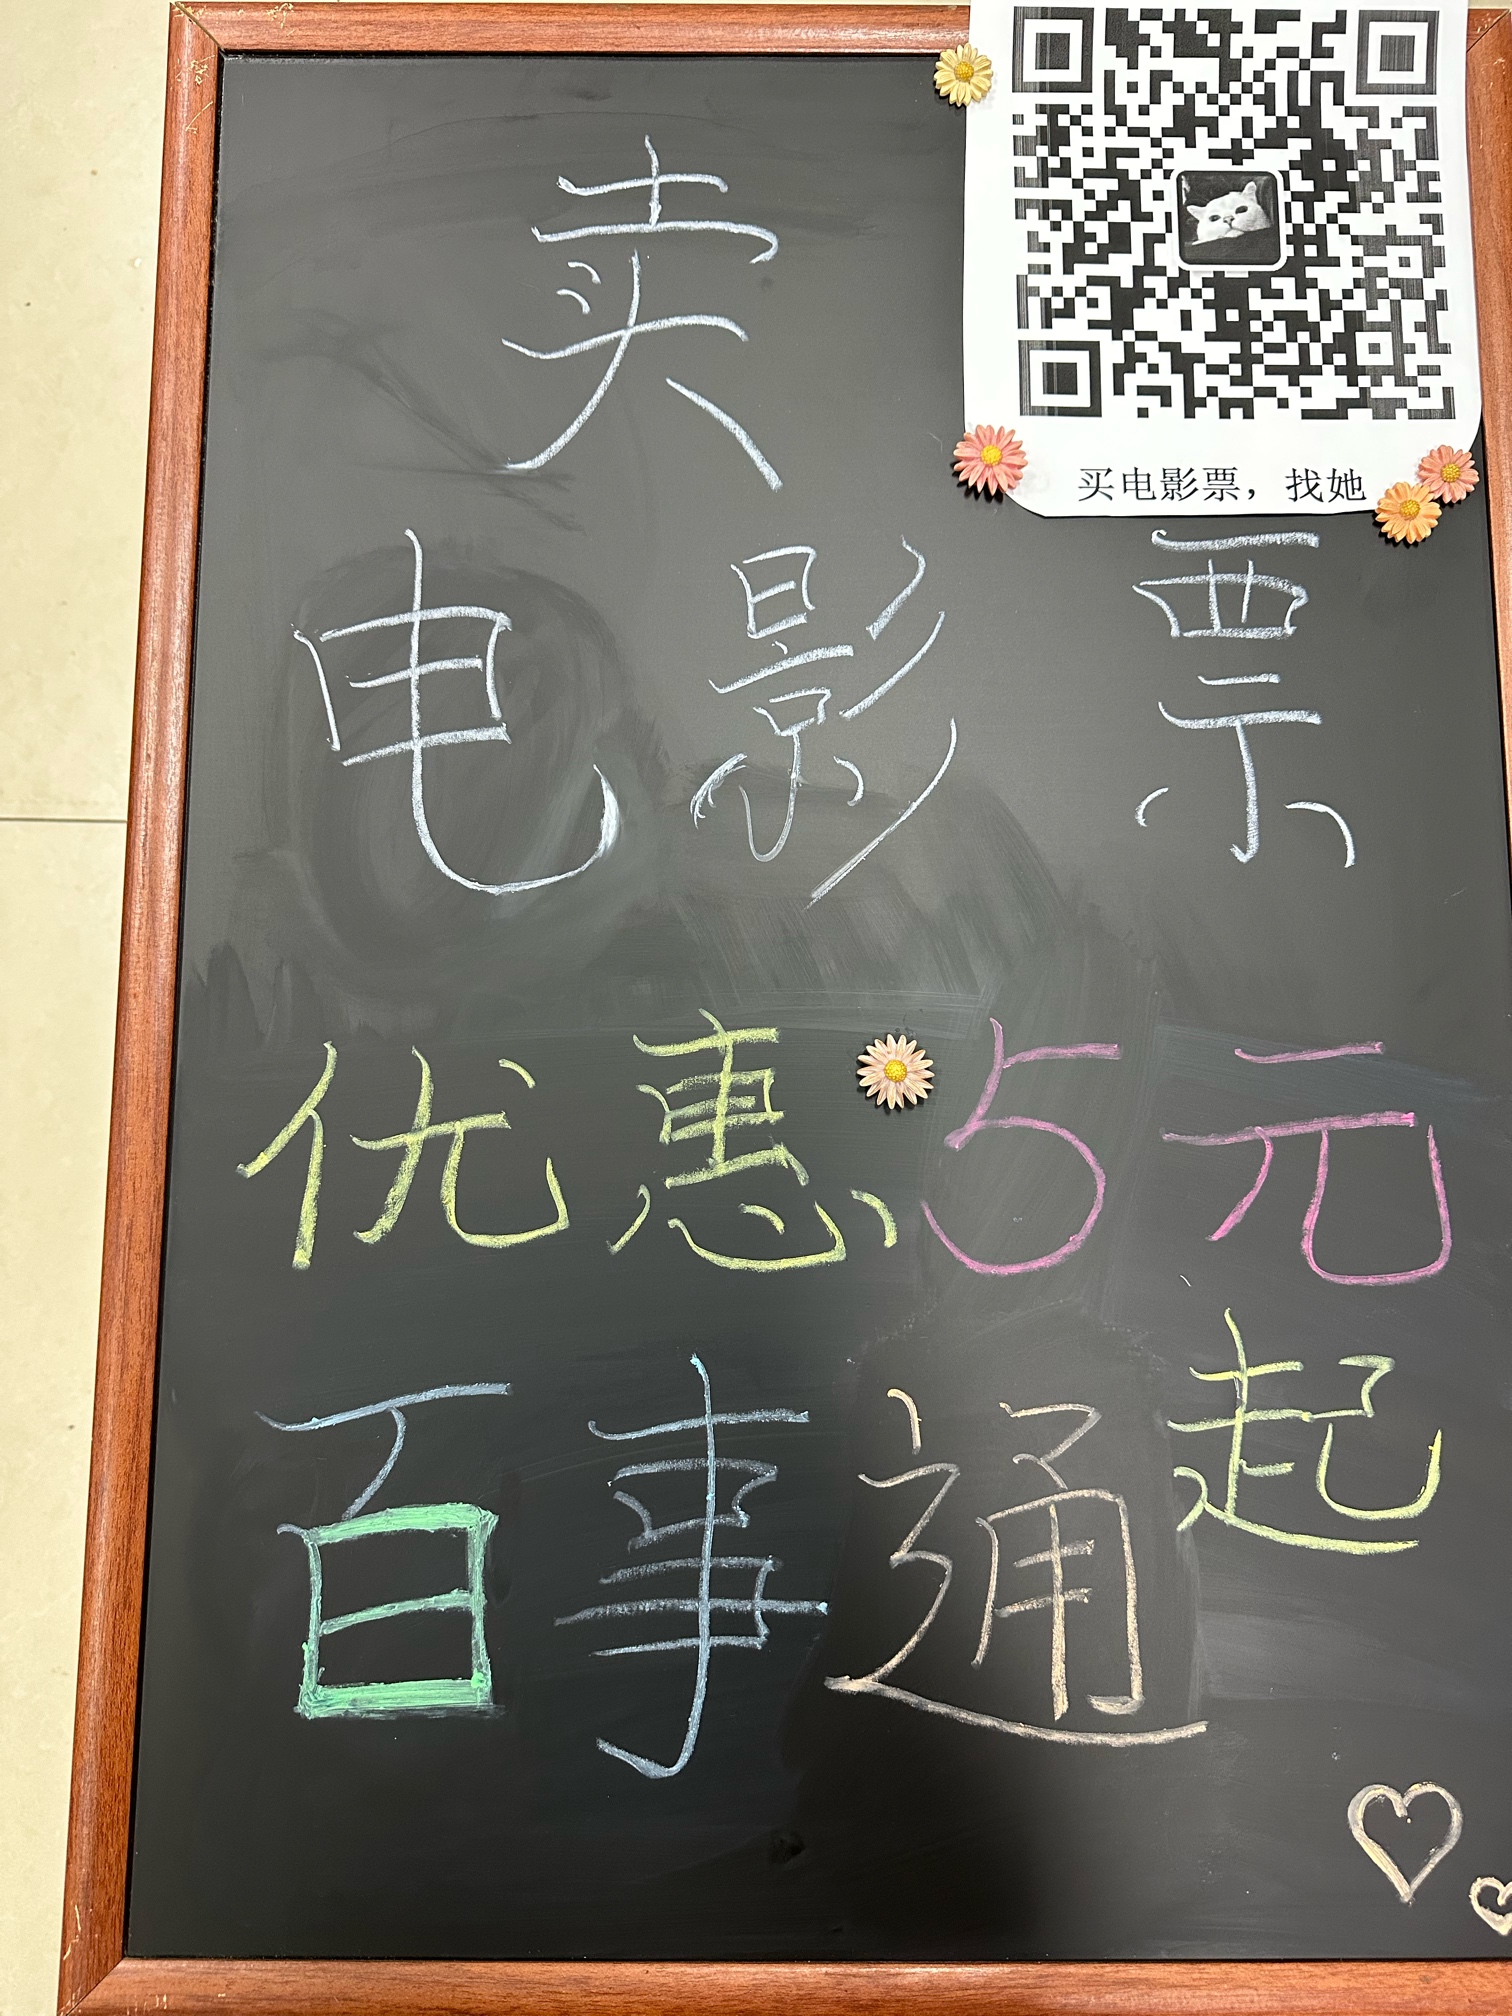 卖
买电影票，找她
电影票
优惠5元
起
百事通